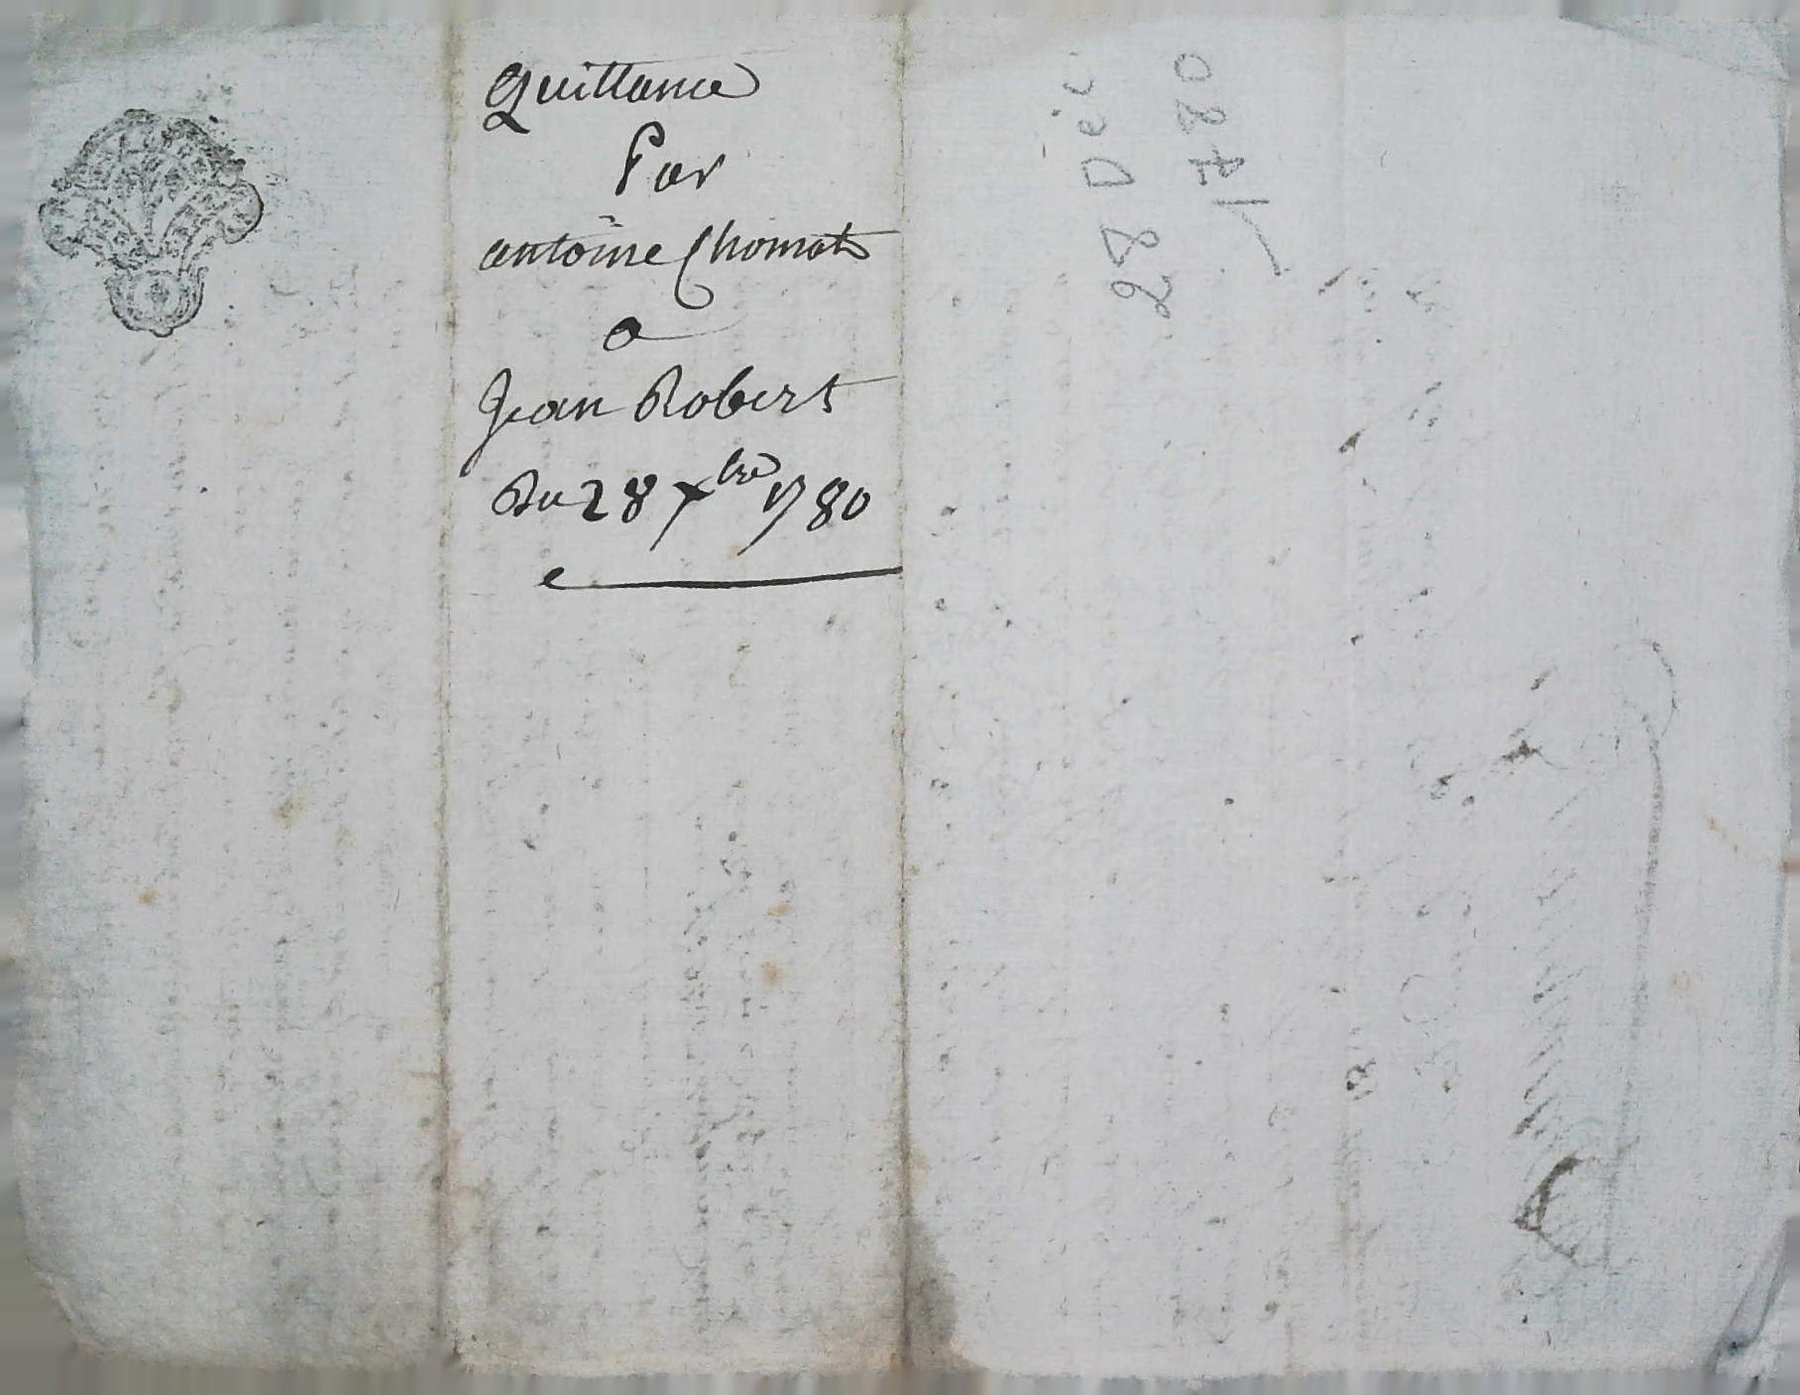 Quittance
Par
antoine Chomat
a
Jean Robert
Du 28 Xbre 1780
28 Déc
1780